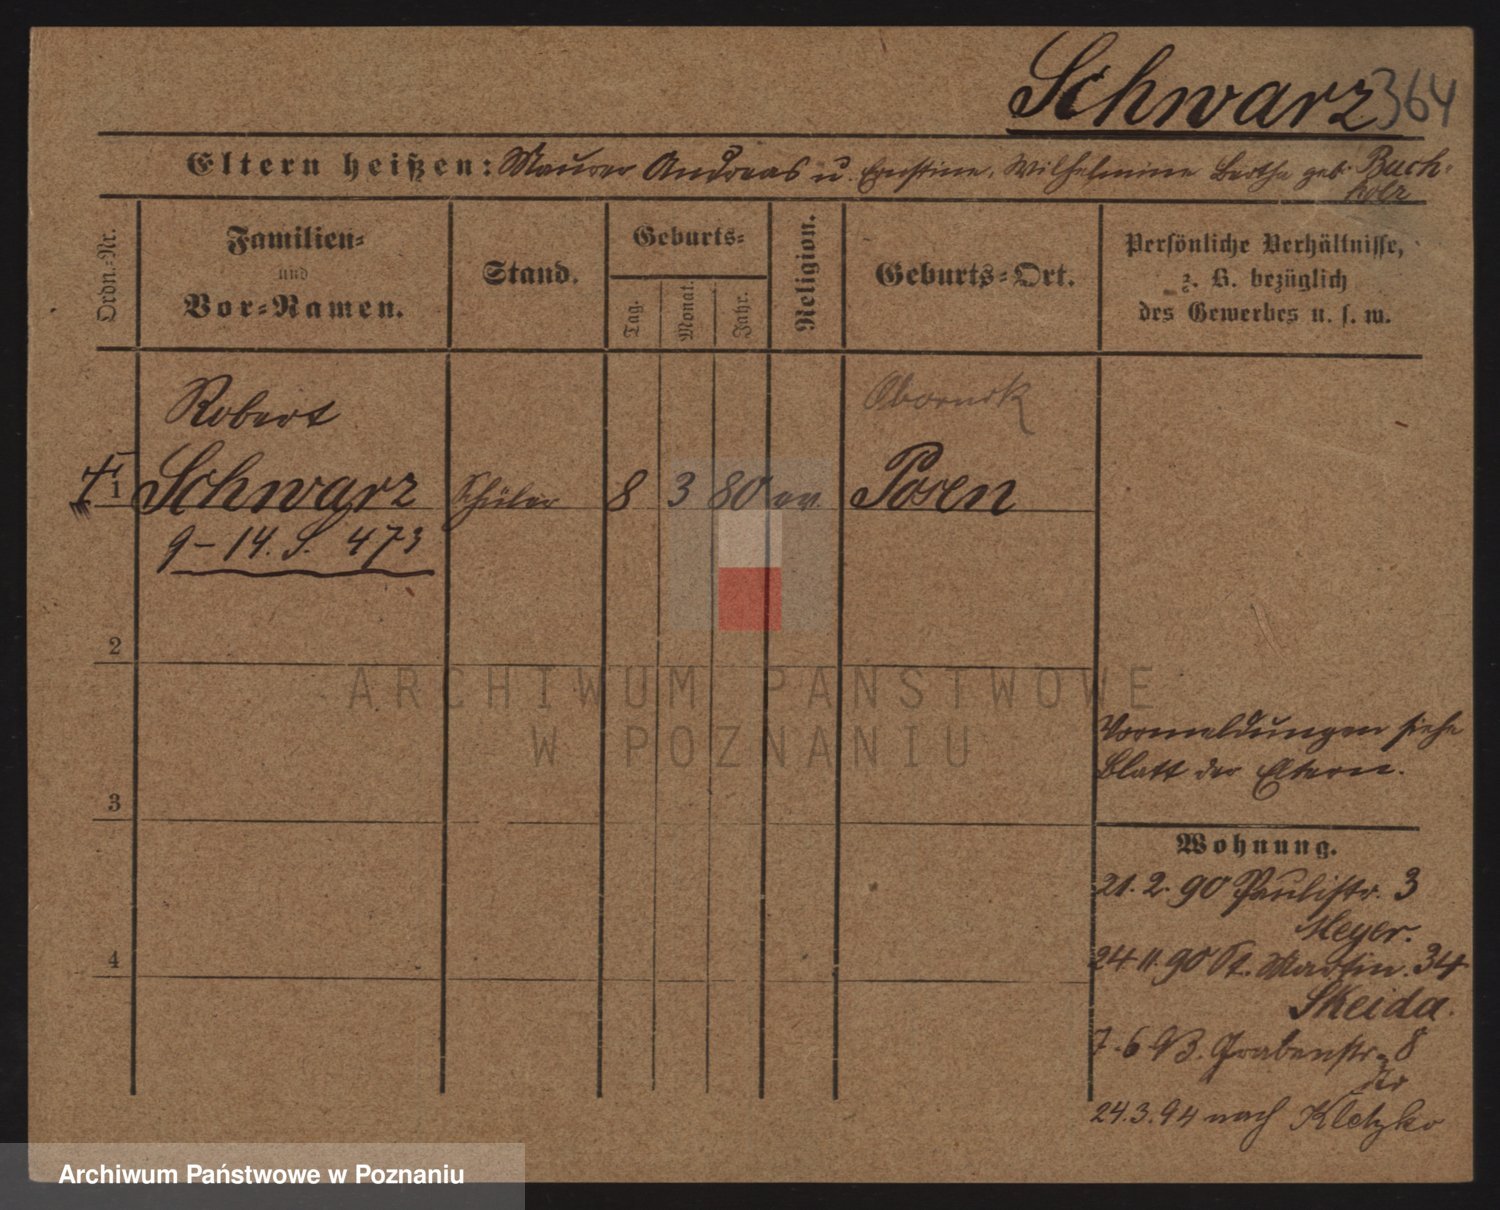 Schwarz 364
Eltern heißen: Maurer Andreas u. Ernstine, Wilhelmine Bertha geb. Buch-
holz
Ordn.-Nr.
Familien-
und
Vor-Namen.
Stand.
Geburts-
Tag.
Monat.
Jahr.
Religion.
Geburts-Ort.
Persönliche Verhältnisse,
z. B. bezüglich
des Gewerbes u. s. w.
Robert
Obornik
1 Schwarz Schüler 8 3 80 ev. Posen
9 – 14. S. 473
2
ARCHIWUM PAŃSTWOWE
W POZNANIU
Vormeldungen siehe
Blatt der Eltern.
3
Wohnung.
21. 2. 90 Paulistr. 3
Meyer.
4
24 11. 90 St. Martin. 34
Skeida.
7. 6 93. Grabenstr. 8
24.3.94 nach Kletzko
Archiwum Państwowe w Poznaniu